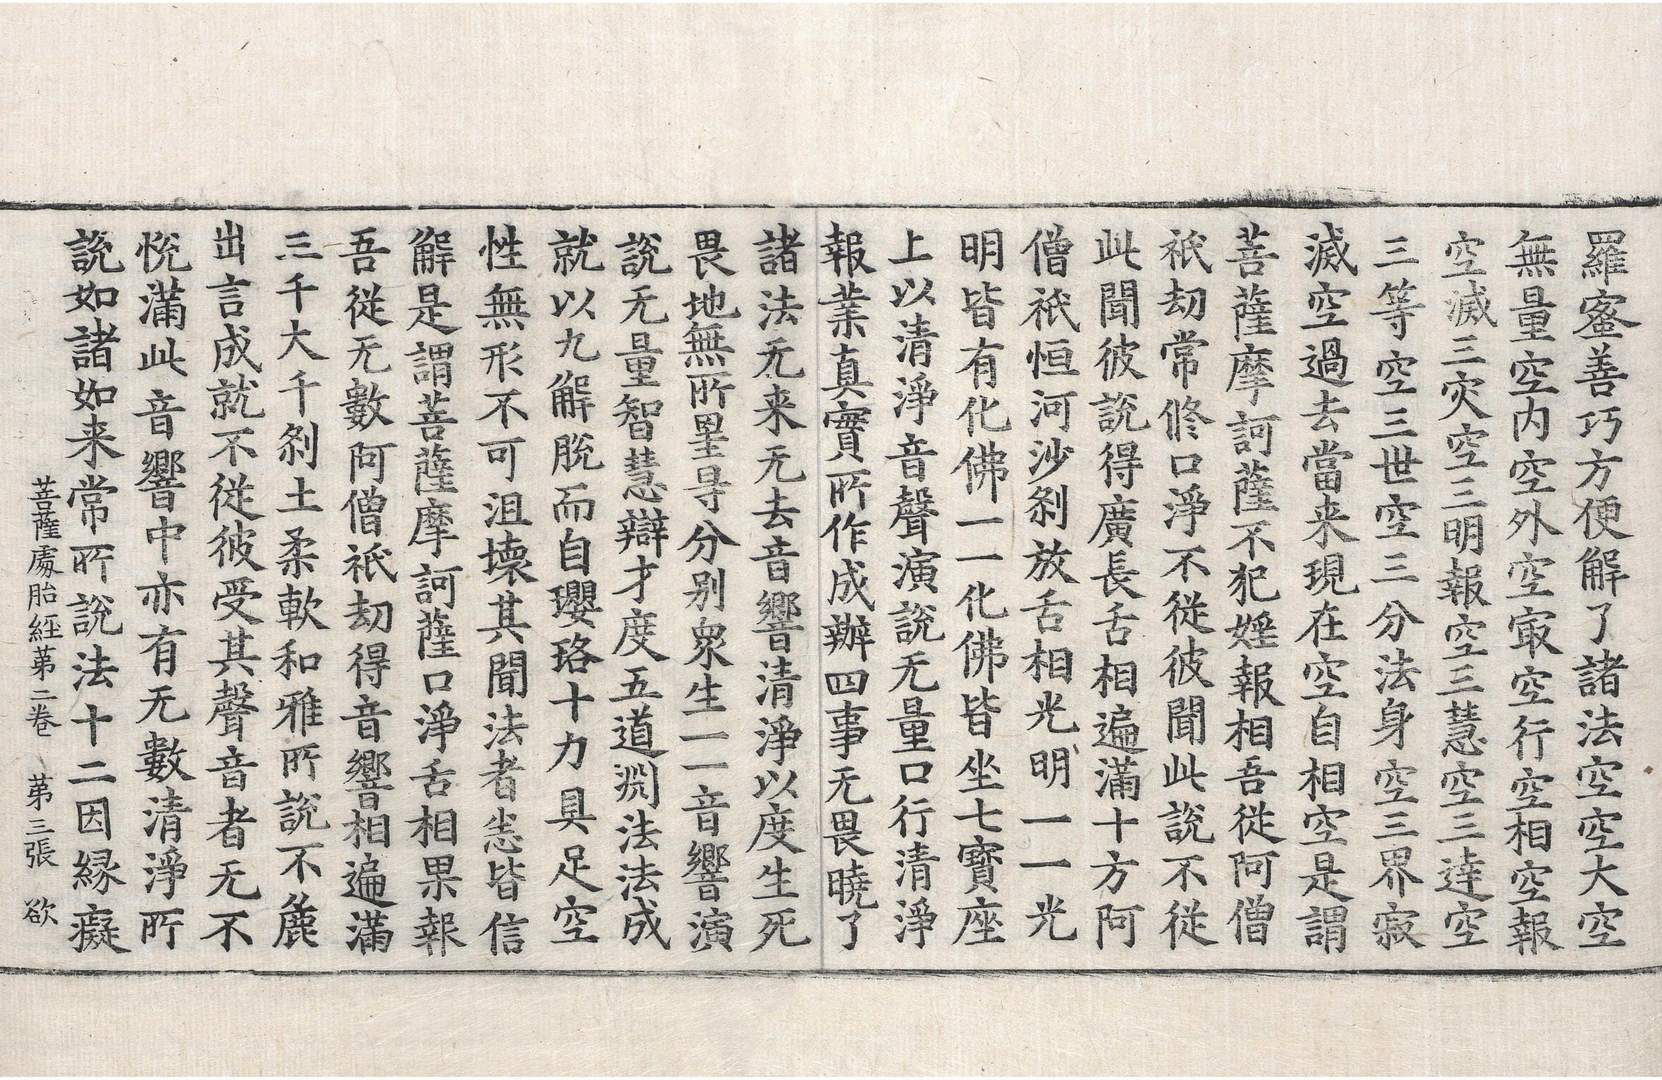 羅蜜善巧方便解了諸法空空大空
無量空内空外空㝡空行空相空報
空滅三灾空三明報空三慧空三達空
三等空三世空三分法身空三界寂
滅空過去當来現在空自相空是謂
菩薩摩訶薩不犯婬報相吾從阿僧
祇劫常修口淨不從彼聞此說不從
此聞彼說得廣長舌相遍滿十方阿
僧祇恒河沙剎放舌相光明一一光
明皆有化佛一一化佛皆坐七寳座
上以清淨音聲演說无量口行清淨
報業真實所作成辦四事无畏曉了
諸法无来无去音響清淨以度生死
畏地無所罣㝵分別衆生一一音響演
說无量智慧辯才度五道淵法法成
就以九解脫而自瓔珞十力具足空
性無形不可沮壞其聞法者悉皆信
解是謂菩薩摩訶薩口淨舌相果報
吾從无數阿僧祇劫得音響相遍滿
三千大千剎土柔軟和雅所說不麁
出言成就不從彼受其聲音者无不
悅滿此音響中亦有无數清淨所
說如諸如来常所說法十二因縁癡
菩薩處胎經第二卷 第三張 欲